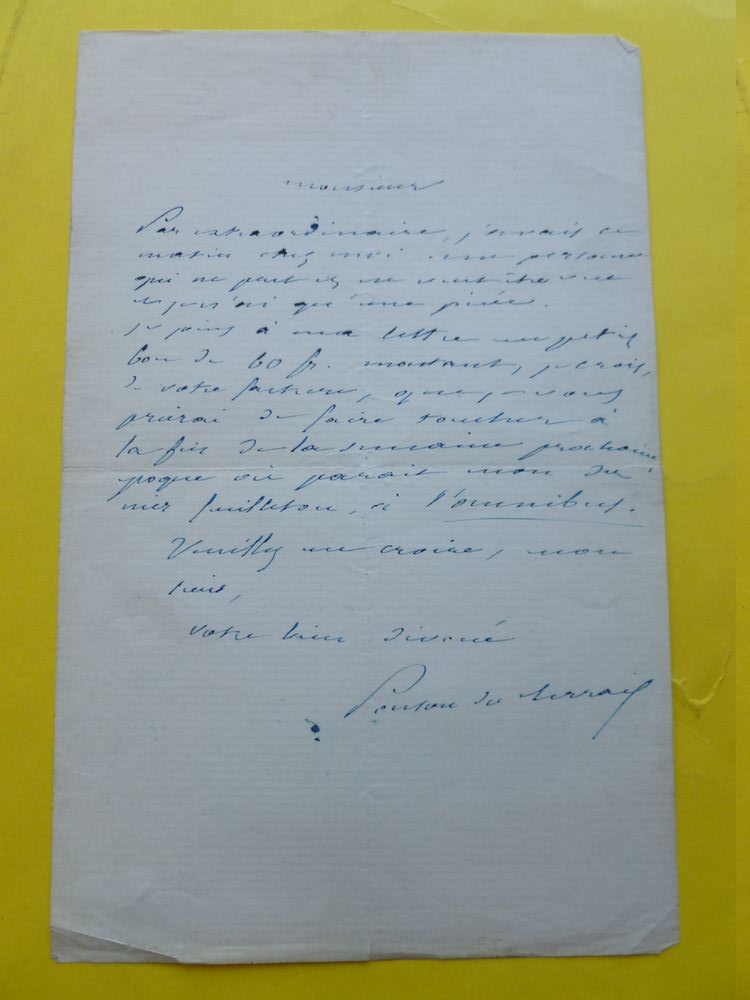 monsieur
Par extraordinaire, j'avais ce
matin chez moi une personne
qui ne peut ni ne veut être vue
et je n'ai qu'une pièce.
je joins à ma lettre un petit
bon de 60 fr. montant, je crois,
de votre facture, que je vous
prierai de faire toucher à
la fin de la semaine prochaine
époque où parait mon der
nier feuilleton, à l'omnibus.
Veuillez me croire, mon
sieur,
votre bien dévoué
Ponson du Terrail